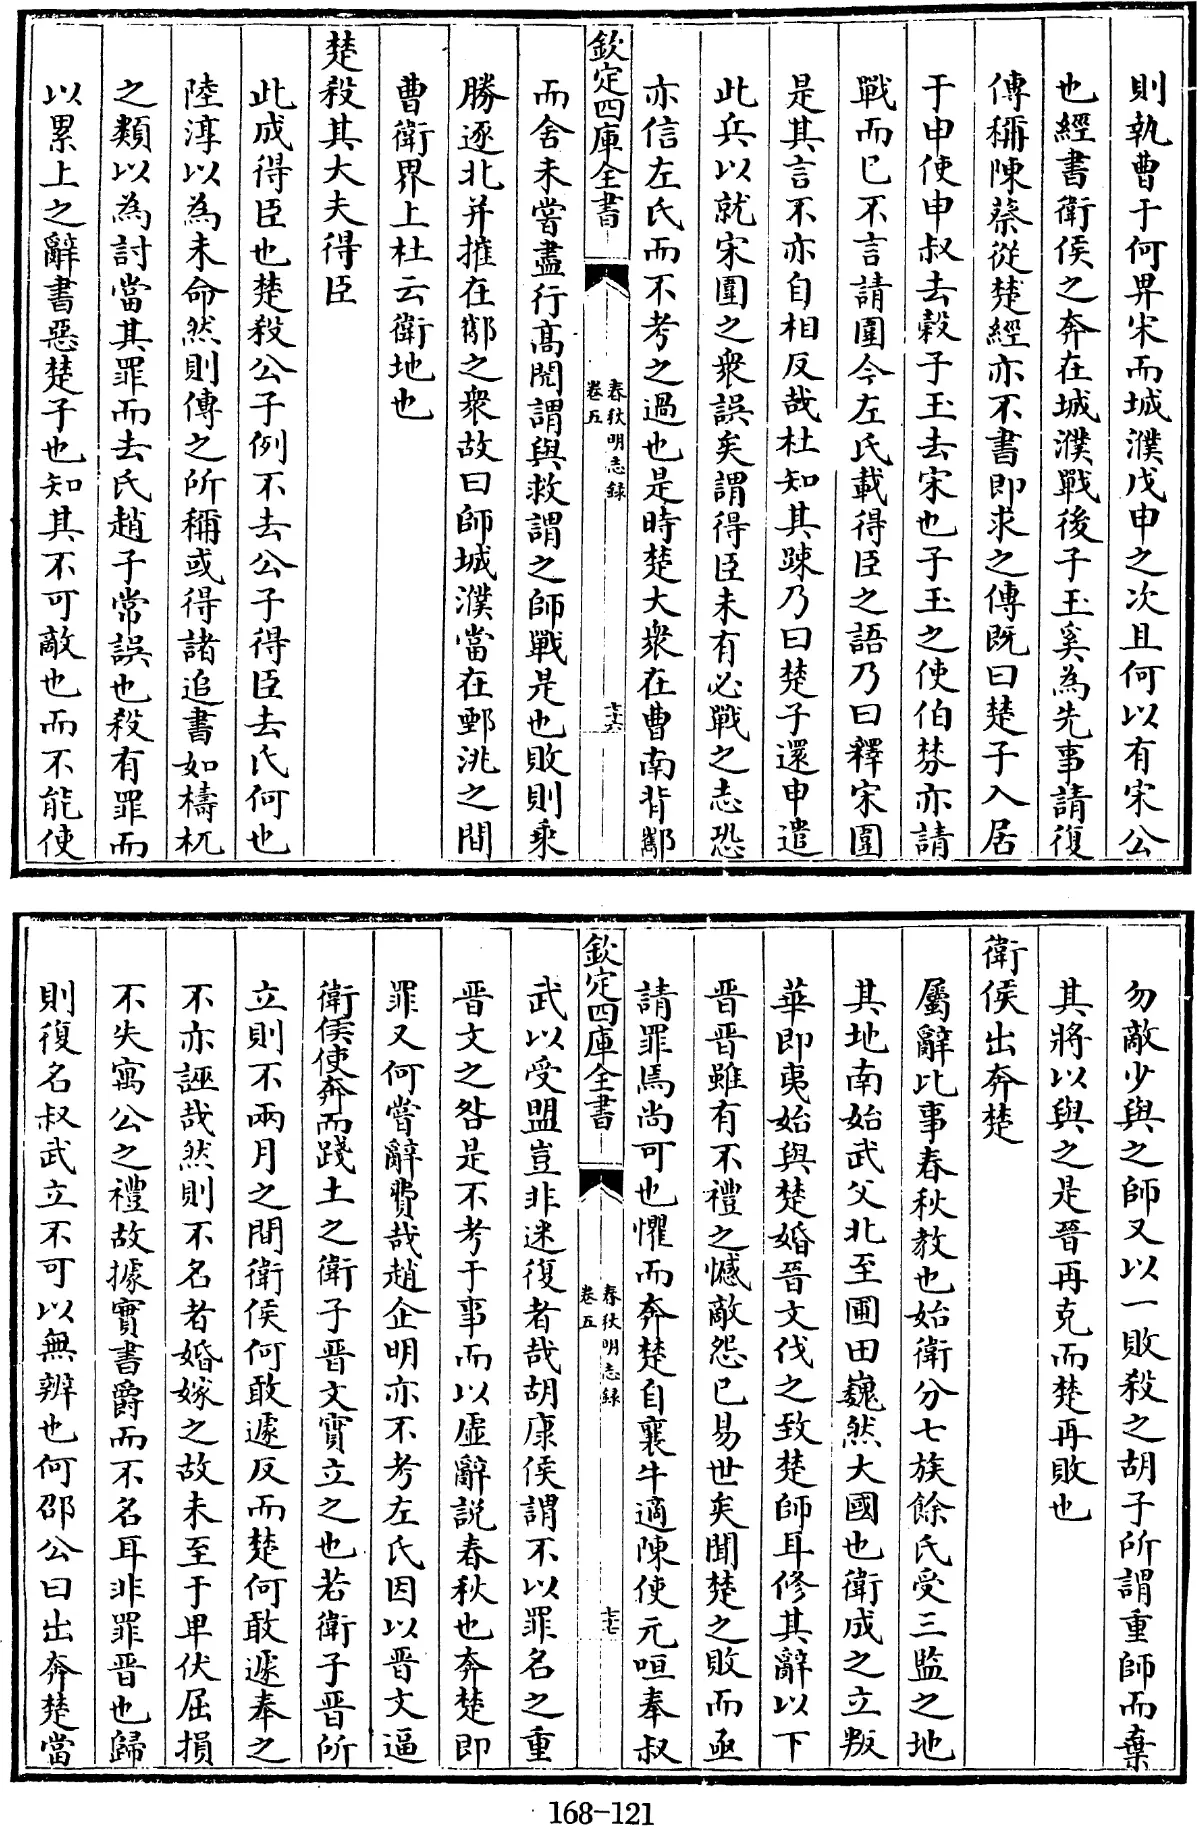 則執曹于何畀宋而城濮戊申之次且何以有宋公
也經書衛侯之奔在城濮戰後子玉奚為先事請復
傳稱陳蔡從楚經亦不書即求之傳既曰楚子入居
于申使申叔去穀子玉去宋也子玉之使伯棼亦請
戰而已不言請圍今左氏載得臣之語乃曰釋宋圍
是其言不亦自相反哉杜知其踈乃曰楚子還申遣
此兵以就宋圍之衆誤矣謂得臣未有必戰之志恐
亦信左氏而不考之過也是時楚大衆在曹南背酅
欽定四庫全書
春秋明志錄
卷五
七十六
而舍未嘗盡行高閌謂與救謂之師戰是也敗則乘
勝逐北并摧在酅之衆故曰師城濮當在鄄洮之間
曹衛界上杜云衛地也
楚殺其大夫得臣
此成得臣也楚殺公子例不去公子得臣去氏何也
陸淳以為未命然則傳之所稱或得諸追書如檮杌
之類以為討當其罪而去氏趙子常誤也殺有罪而
以累上之辭書惡楚子也知其不可敵也而不能使
勿敵少與之師又以一敗殺之胡子所謂重師而棄
其將以與之是晉再克而楚再敗也
衛侯出奔楚
屬辭比事春秋教也始衛分七族餘氏受三監之地
其地南始武父北至圃田巍然大國也衛成之立叛
華即夷始與楚婚晉文伐之致楚師耳修其辭以下
晉晉雖有不禮之憾敵怨已易世矣聞楚之敗而亟
請罪焉尚可也懼而奔楚自襄牛適陳使元咺奉叔
欽定四庫全書
春秋明志錄
卷五
七十七
武以受盟豈非迷復者哉胡康侯謂不以罪名之重
晉文之咎是不考于事而以虛辭說春秋也奔楚即
罪又何嘗辭費哉趙企明亦不考左氏因以晉文逼
衛侯使奔而踐土之衛子晉文實立之也若衛子晉所
立則不兩月之間衛侯何敢遽反而楚何敢遽奉之
不亦誣哉然則不名者婚嫁之故未至于卑伏屈損
不失寓公之禮故據實書爵而不名耳非罪晉也歸
則復名叔武立不可以無辨也何邵公曰出奔楚當
168-121